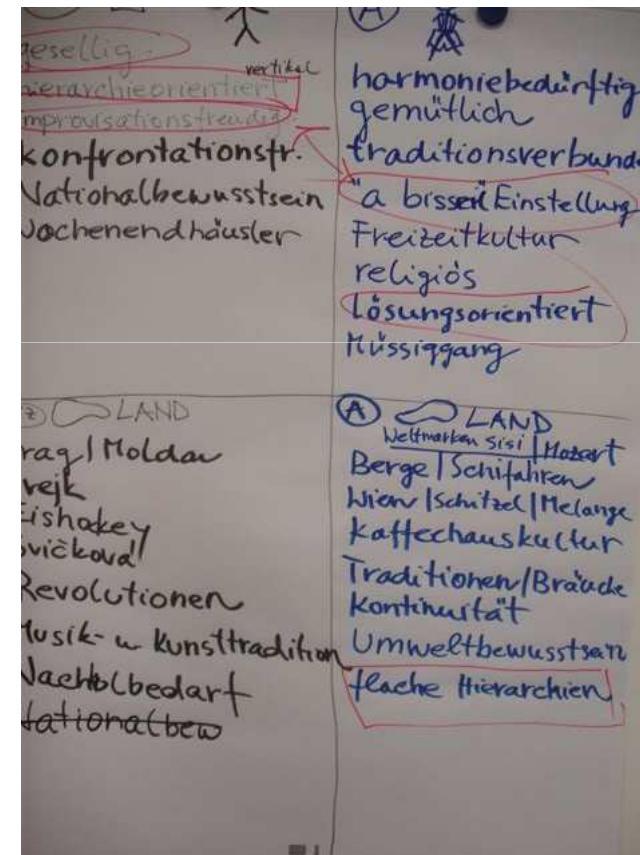 gesellig
vertikal
hierarchieorientiert
improvisationsfreudig
konfrontationsfr.
Nationalbewusstsein
Wochenendhäusler
A
harmoniebedürftig
gemütlich
traditionsverbunde
"a bisserl" Einstellung
Freizeitkultur
religiös
Lösungsorientiert
Müssiggang
Z LAND
rag | Moldau
vejk
Eishokey
Svičková!
Revolutionen
Musik- u Kunsttradition
Nachholbedarf
Nationalbew
A LAND
Weltmarken Sisi | Mozart
Berge | Schifahren
Wien | Schitzel | Melange
Kaffeehauskultur
Traditionen/Bräuche
Kontinuität
Umweltbewusstsein
flache Hierarchien